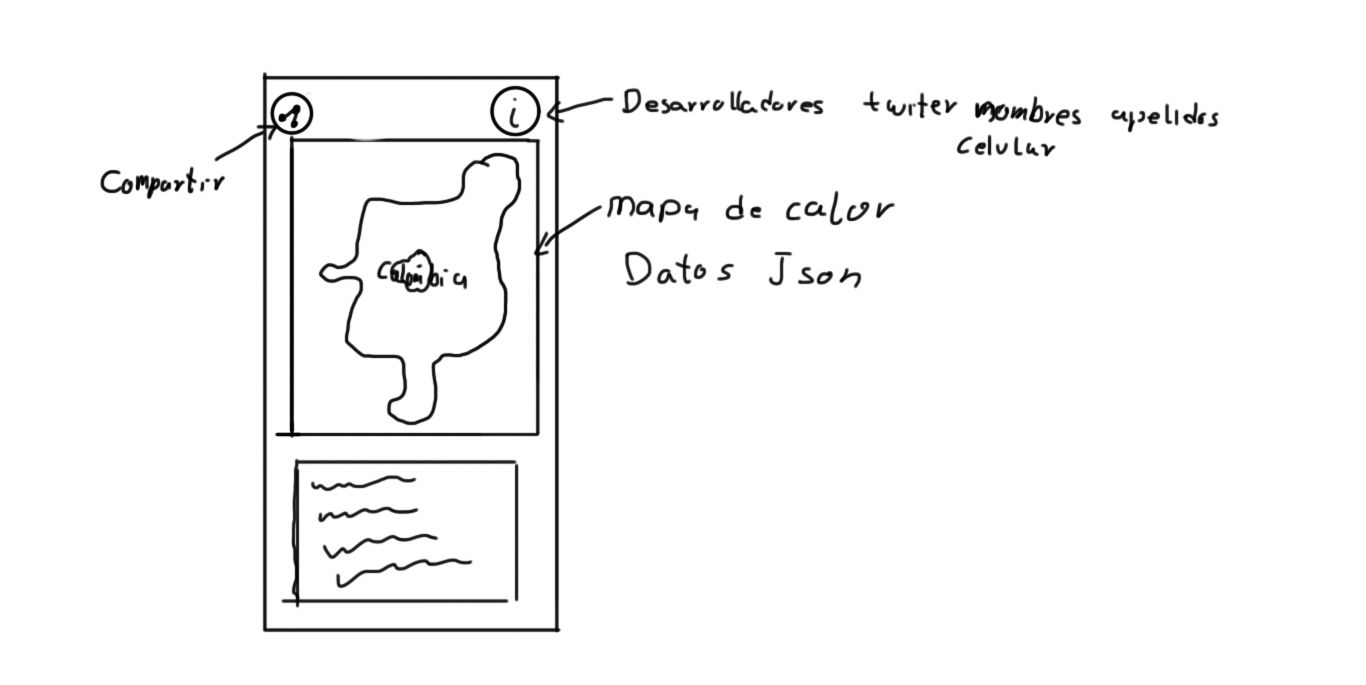 i
Desarrolladores twiter nombres apelidos
Celular
Compartir
mapa de calor
Colombia
Datos Json